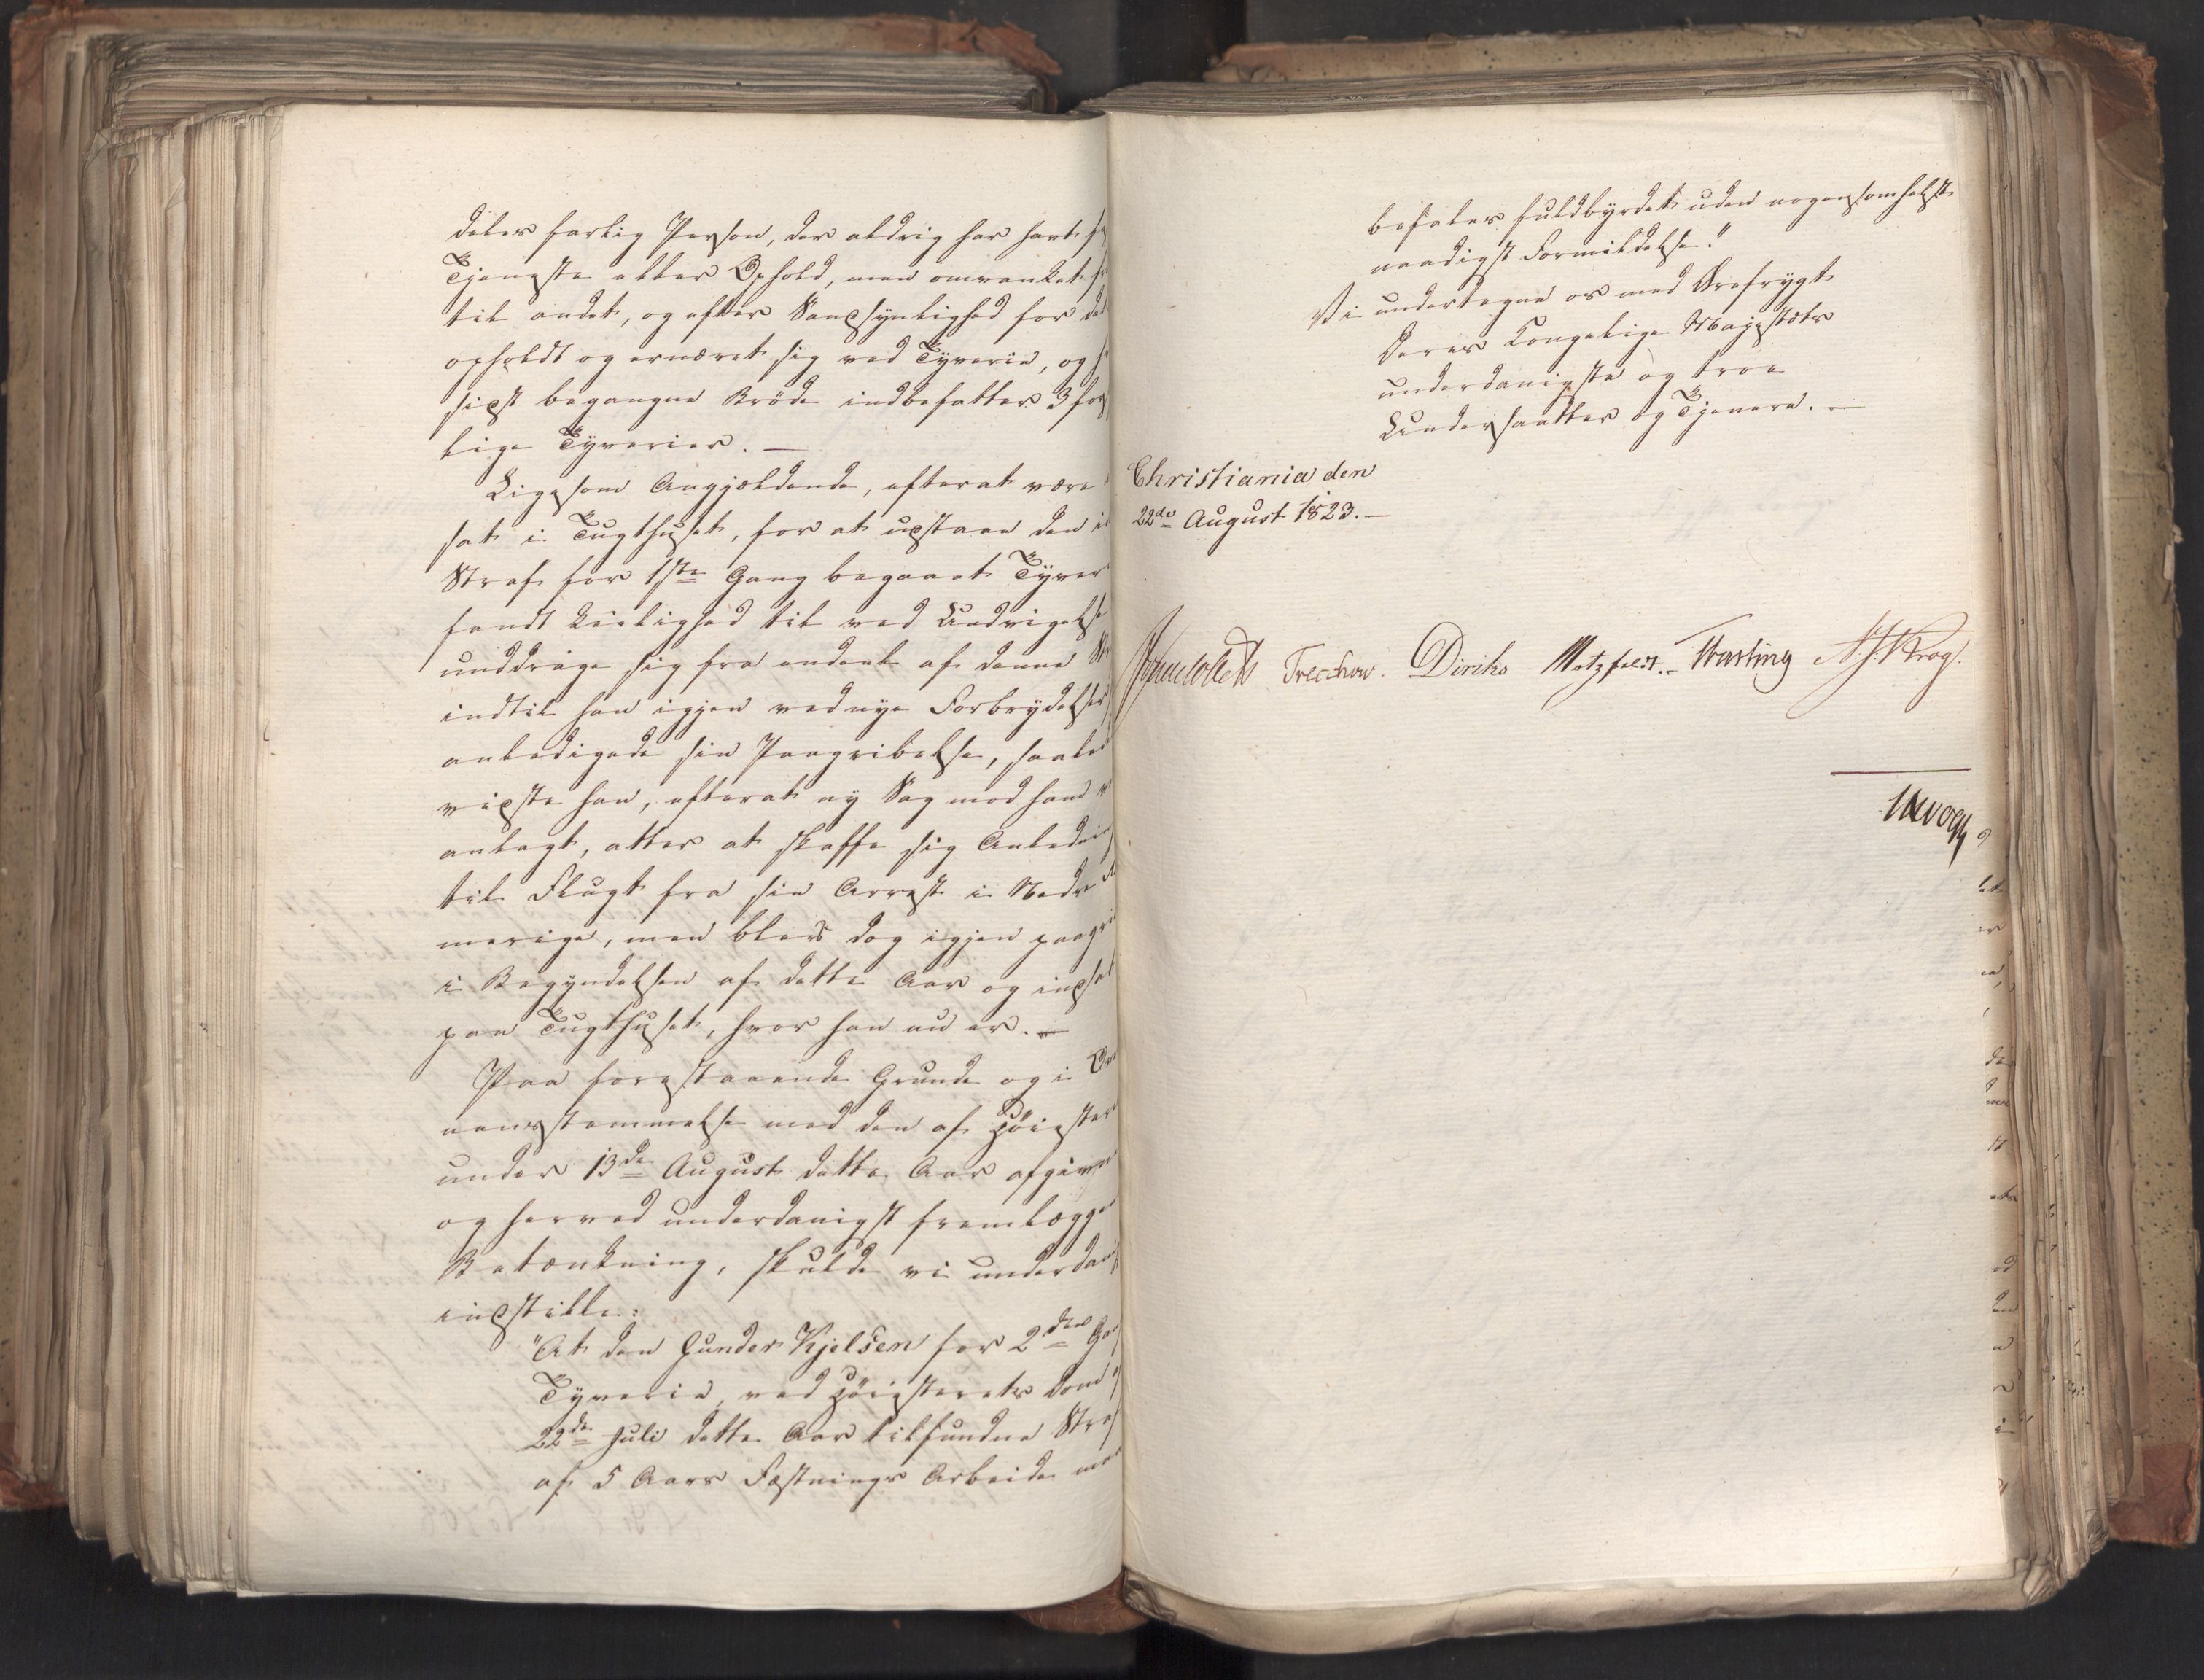 deles farlig Person, der aldrig har havt
Tjeneste eller Ophold, men omvanket
til andet, og efter Sandsynlighed for
opholdt og ernæret sig ved Tyverie, og
sidst begangne Bröde indbefatter 3
lige Tyverier. —
Ligesom Angjældende, efterat være
sat i Tugthuset, for at udstaae den
Straf for 1ste Gang begaaet
fandt Leilighed til ved Undvigelse
unddrage sig fra endeel af denne
indtil han igjen ved nye Forbrydelser
anledigede sin Paagribelse,
vidste han, efterat ny Sag mod ham
anlagt, atter at skaffe sig
til Flugt fra sin Arrest i Nedre
merige, men blev dog igjen
i Begyndelsen af dette Aar og
paa Tugthuset, hvor han nu er. —
Paa forestaaende Grunde og i
eensstemmelse med den af
under 13de August dette Aar
og herved underdanigst
Betænkning, skulde vi
indstille:
"At den Gunder Kjelsen for 2den
Tyverie, ved Höiesterets Dom
22de Juli dette Aar tilfundne
af 5 Aars Fæstnings Arbeide
befales fuldbyrdet uden nogensomhelst
naadigst Formildelse."
Vi undertegne os med Ærefrygt
Deres Kongelige Majestæts
underdanigste og troe
Undersaatter og Tjenere. —
Christiania den
22de August 1823. —
Jonas Collett Treschow. Diriks Motzfeldt. Fasting N. J. Krog.
Vogt